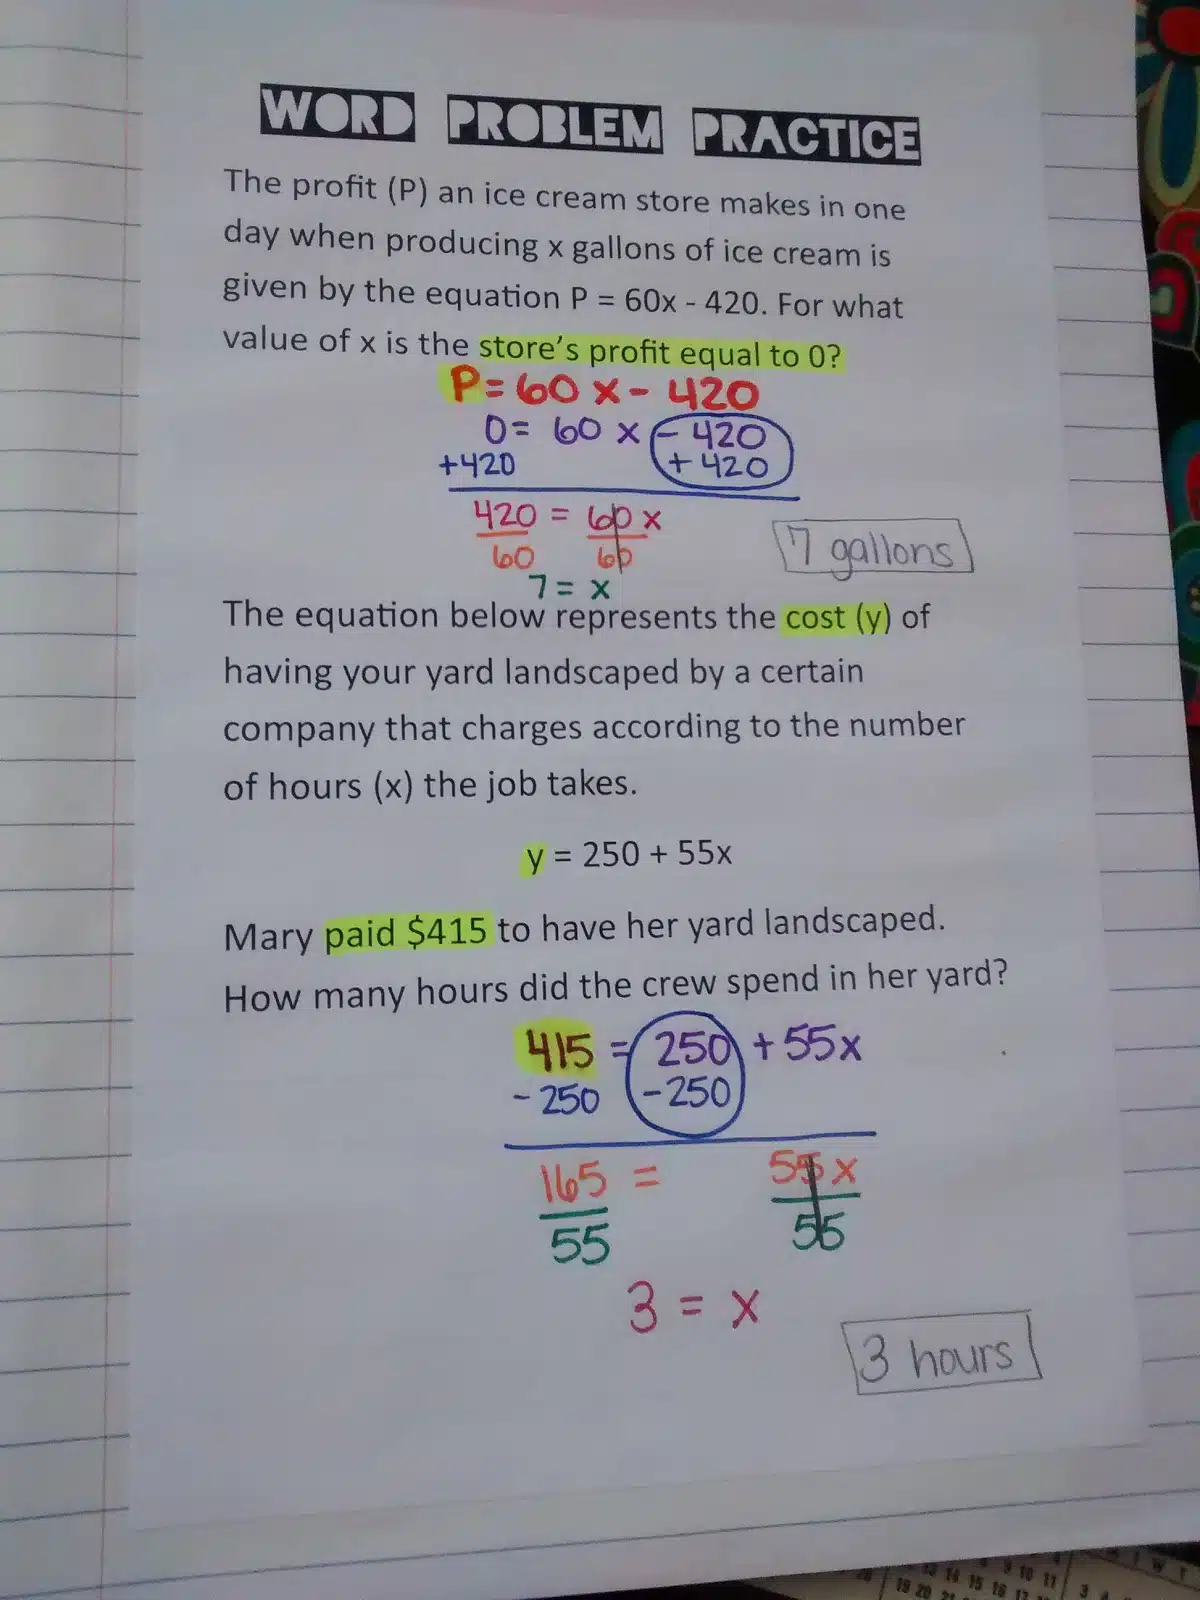 WORD PROBLEM PRACTICE
The profit (P) an ice cream store makes in one
day when producing x gallons of ice cream is
given by the equation P = 60x - 420. For what
value of x is the store's profit equal to 0?
P = 60 x - 420
0 = 60 x - 420
+420 +420
420 = 60 x
60 60
7 gallons
7 = x
The equation below represents the cost (y) of
having your yard landscaped by a certain
company that charges according to the number
of hours (x) the job takes.
y = 250 + 55x
Mary paid $415 to have her yard landscaped.
How many hours did the crew spend in her yard?
415 = 250 + 55x
- 250 - 250
165 = 55 x
55 55
3 = x
3 hours
W T
9 10 11 3
14 15 16 17
19 20 21